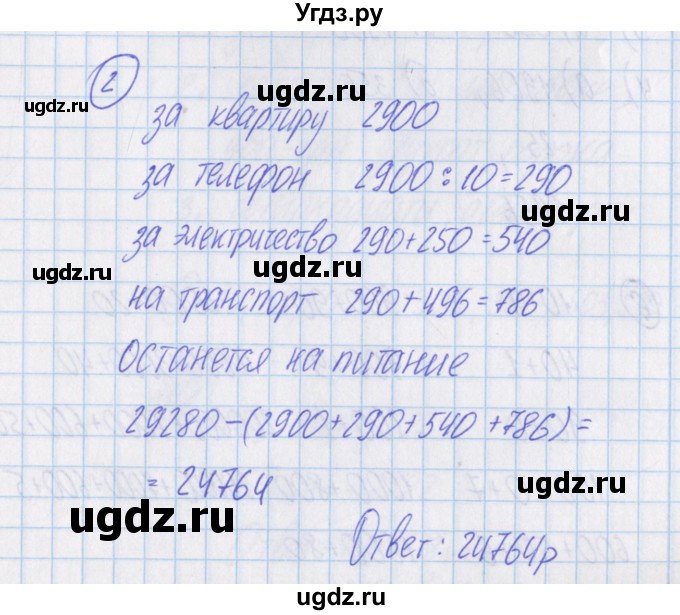 Угдз.ру
ugdz.ru
ugdz.ru
2
за квартиру 2900
ugdz.ru
за телефон 2900 : 10 = 290
ugdz.ru
за электричество 290+250 = 540
ugdz.ru
ugdz.ru
на транспорт 290 + 496 = 786
ugdz.ru
Останется на питание
ugdz.ru
29280 - (2900 + 290 + 540 + 786) =
ugdz.ru
= 24764
ugdz.ru
ugdz.ru
Ответ: 24764р
ugdz.ru
Угдз.ру